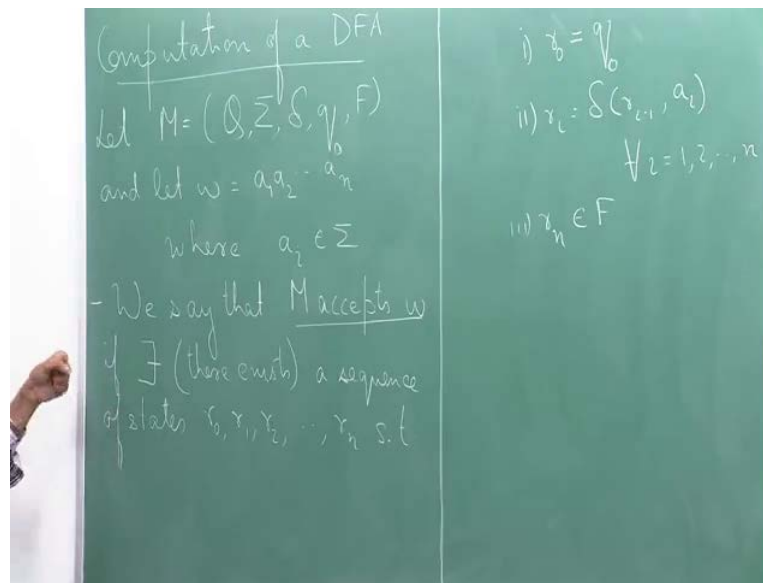 Computation of a DFA
Let M = (Q, Σ, δ, q₀, F)
and let w = a₁a₂ ··· aₙ
where aᵢ ∈ Σ
- We say that M accepts w
if ∃ (there exists) a sequence
of states r₀, r₁, r₂, ··, rₙ s.t
i) r₀ = q₀
ii) rᵢ = δ(rᵢ₋₁, aᵢ)
∀ i = 1, 2, ··, n
iii) rₙ ∈ F